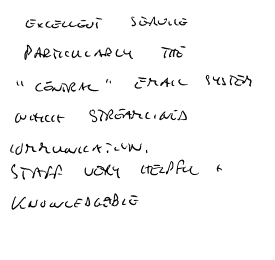 EXCELLENT SERVICE
PARTICULARLY THE
"CENTRAL" EMAIL SYSTEM
WHICH STREAMLINED
COMMUNICATION.
STAFF VERY HELPFUL +
KNOWLEDGABLE